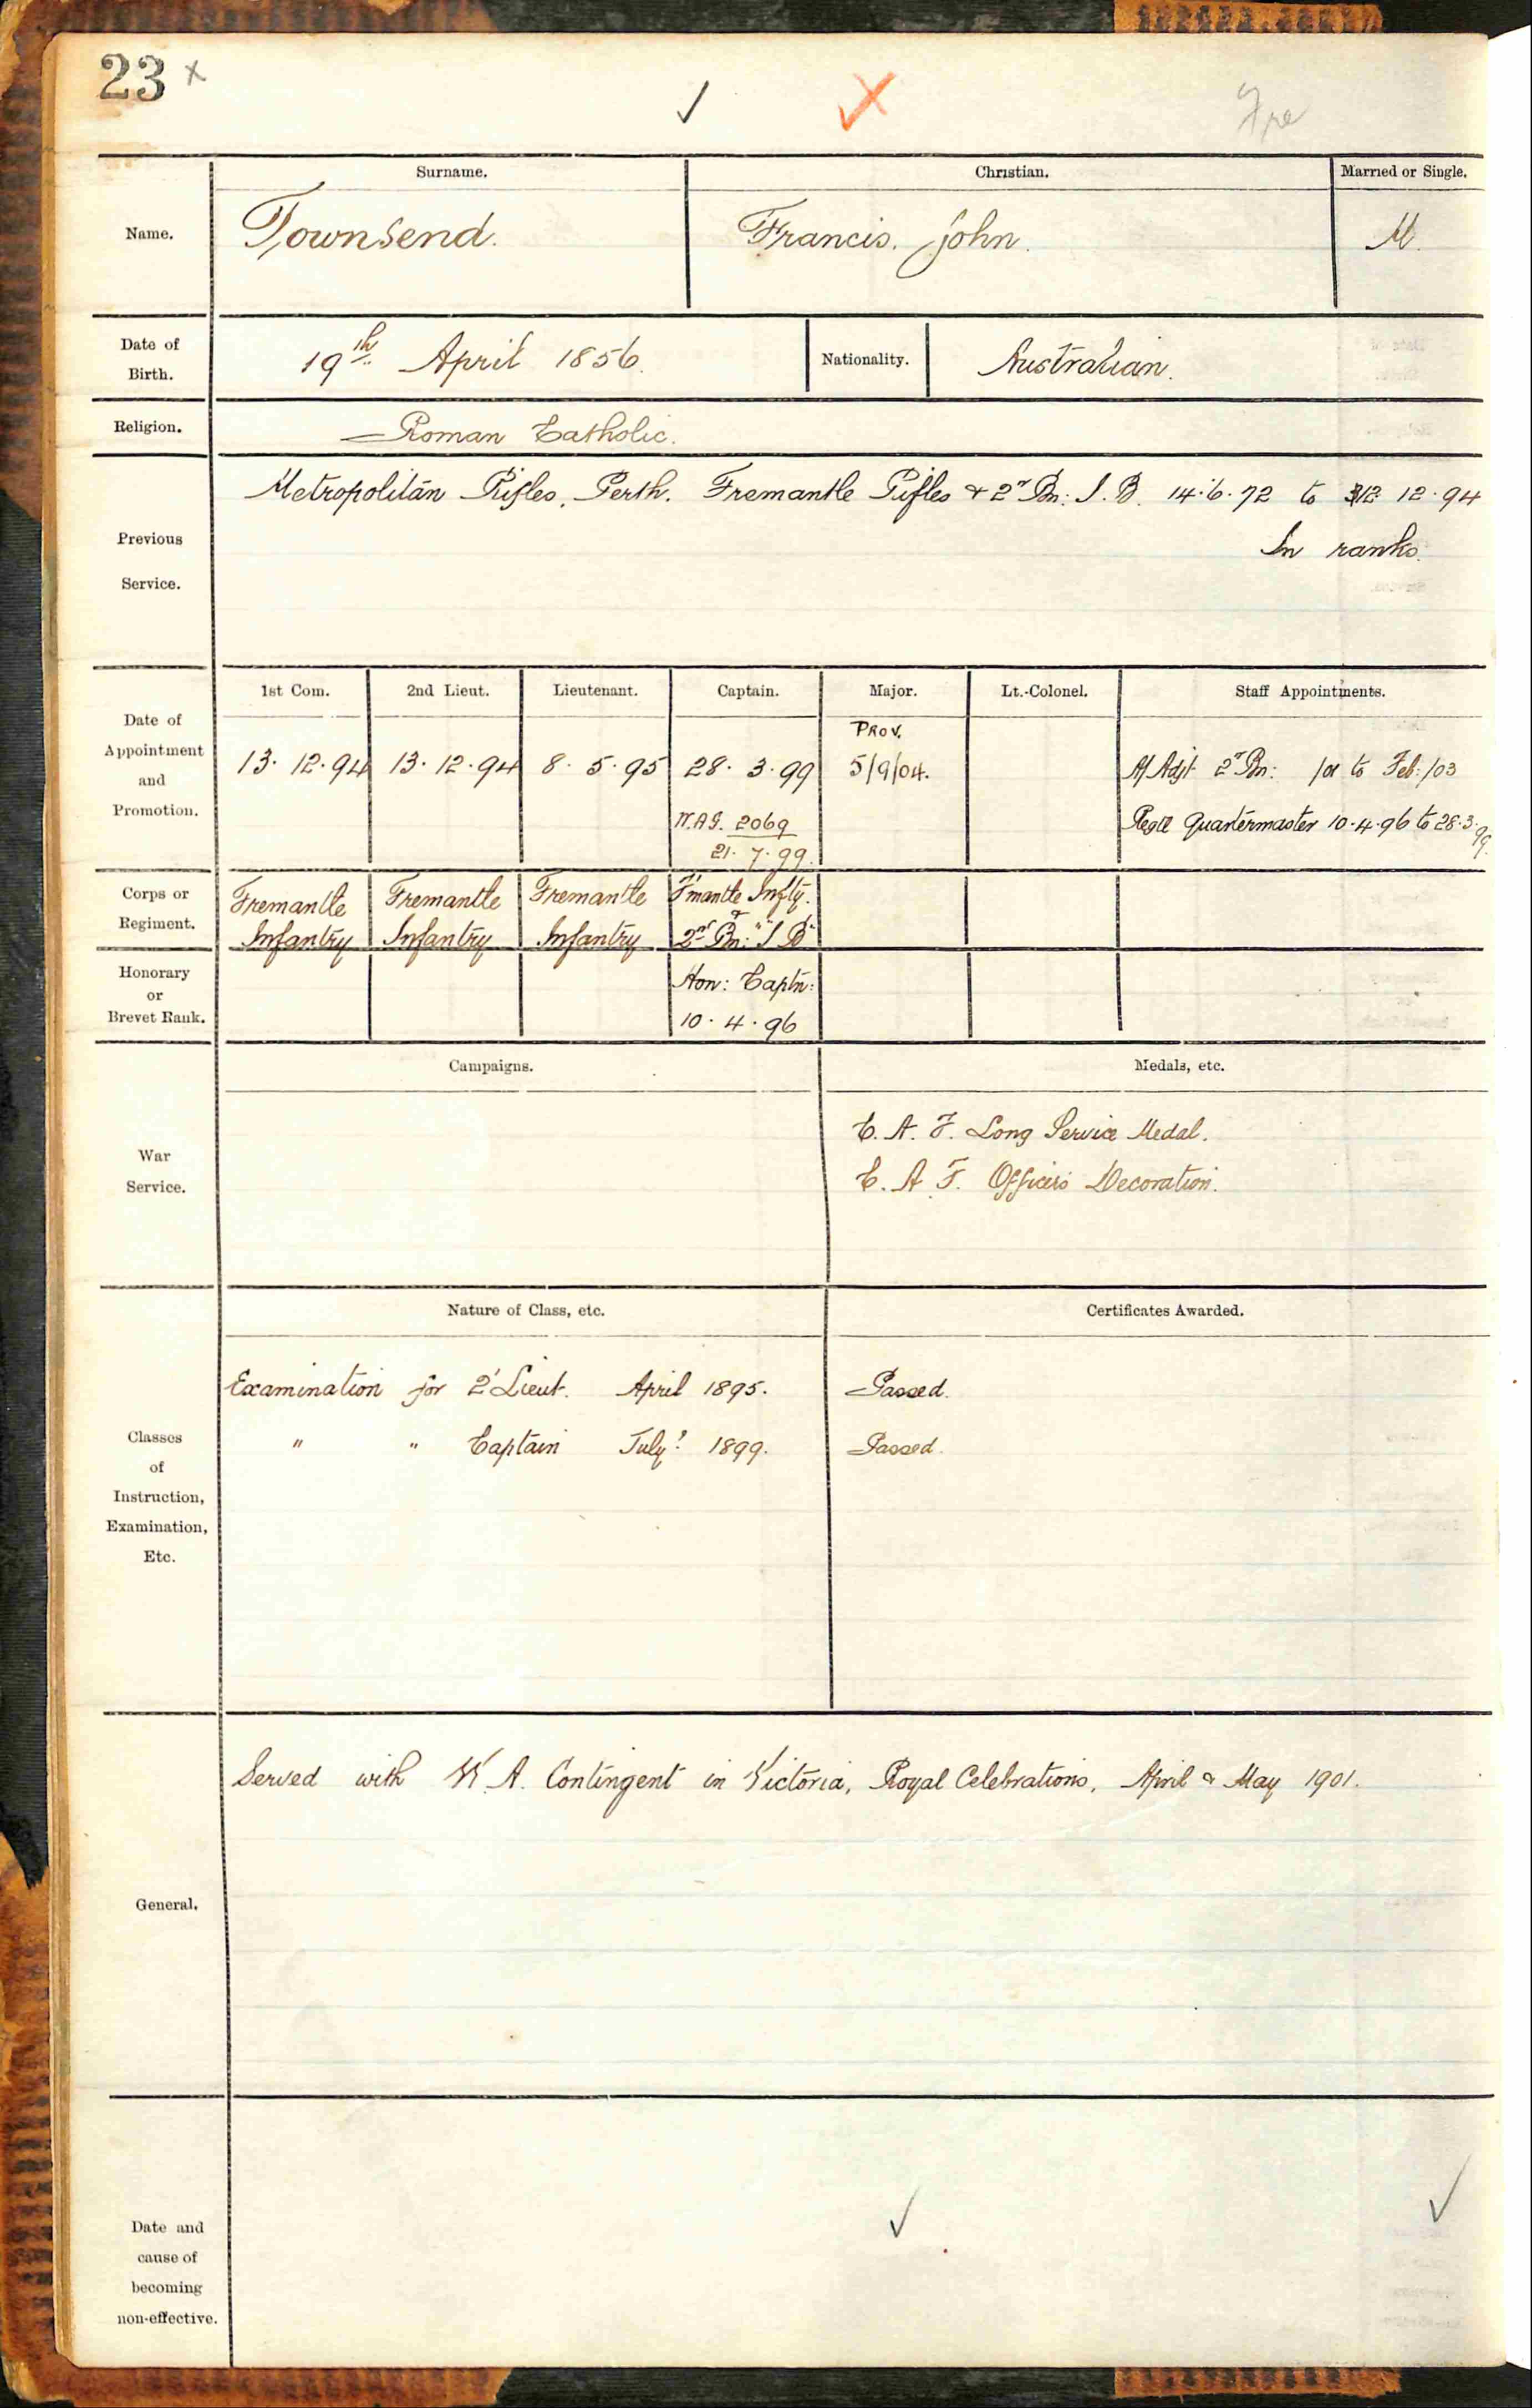 23 x
Fre
Surname. Christian. Married or Single.
Name. Townsend. Francis. John. M.
Date of Birth. 19th April 1856. Nationality. Australian.
Religion. Roman Catholic.
Previous Service. Metropolitan Rifles, Perth. Fremantle Rifles & 2nd Bn: I. B. 14.6.72 to 12.94
In ranks.
Date of Appointment and Promotion.
1st Com. 2nd Lieut. Lieutenant. Captain. Major. Lt.-Colonel. Staff Appointments.
PROV.
13. 12. 94 13. 12. 94 8. 5. 95 28. 3. 99 5/9/04. A/Adjt 2nd Bn: /01 to Feb: /03
W.A.G. 2069 Regtl Quartermaster 10.4.96 to 28.3.99.
21. 7. 99.
Corps or Regiment.
Fremantle Fremantle Fremantle F'mantle Inftŷ. &
Infantry Infantry Infantry 2nd Bn: "I B"
Honorary or Brevet Rank.
Hon: Captn:
10. 4. 96
Campaigns. Medals, etc.
War Service.
C. A. F. Long Service Medal.
C. A. F. Officers Decoration.
Nature of Class, etc. Certificates Awarded.
Classes of Instruction, Examination, Etc.
Examination for 2' Lieut. April 1895. Passed.
" " Captain July? 1899. Passed.
General.
Served with W. A. Contingent in Victoria, Royal Celebrations, April & May 1901.
Date and cause of becoming non-effective.